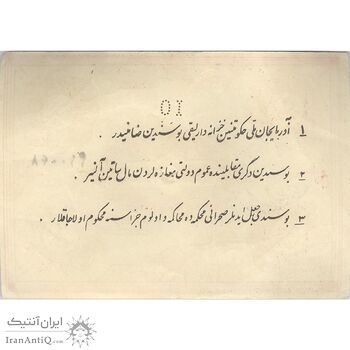 10
۱ آذربایجان ملی حکومتنین خزانه داریقی بو سندین ضامنیدر .
۲ بو سندین دگری مقابلینده عموم دولتی مغازه لردن مال ساتین آلنیر .
۳ بو سندی جعل ایدنلر صحرائی محکمه ده محاکمه و اولوم جزاسنه محکوم اولاجاقلار .
ایران آنتیک
IranAntiQ.com